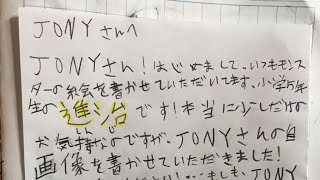 JONYさんへ
JONYさん!はじめまして、いつもモンス
ターの絵を書かせていただいてます。小学5年
生の進治です!本当に少しだけの
お気持なのですが、JONYさんの自
画像を書かせていただきました!